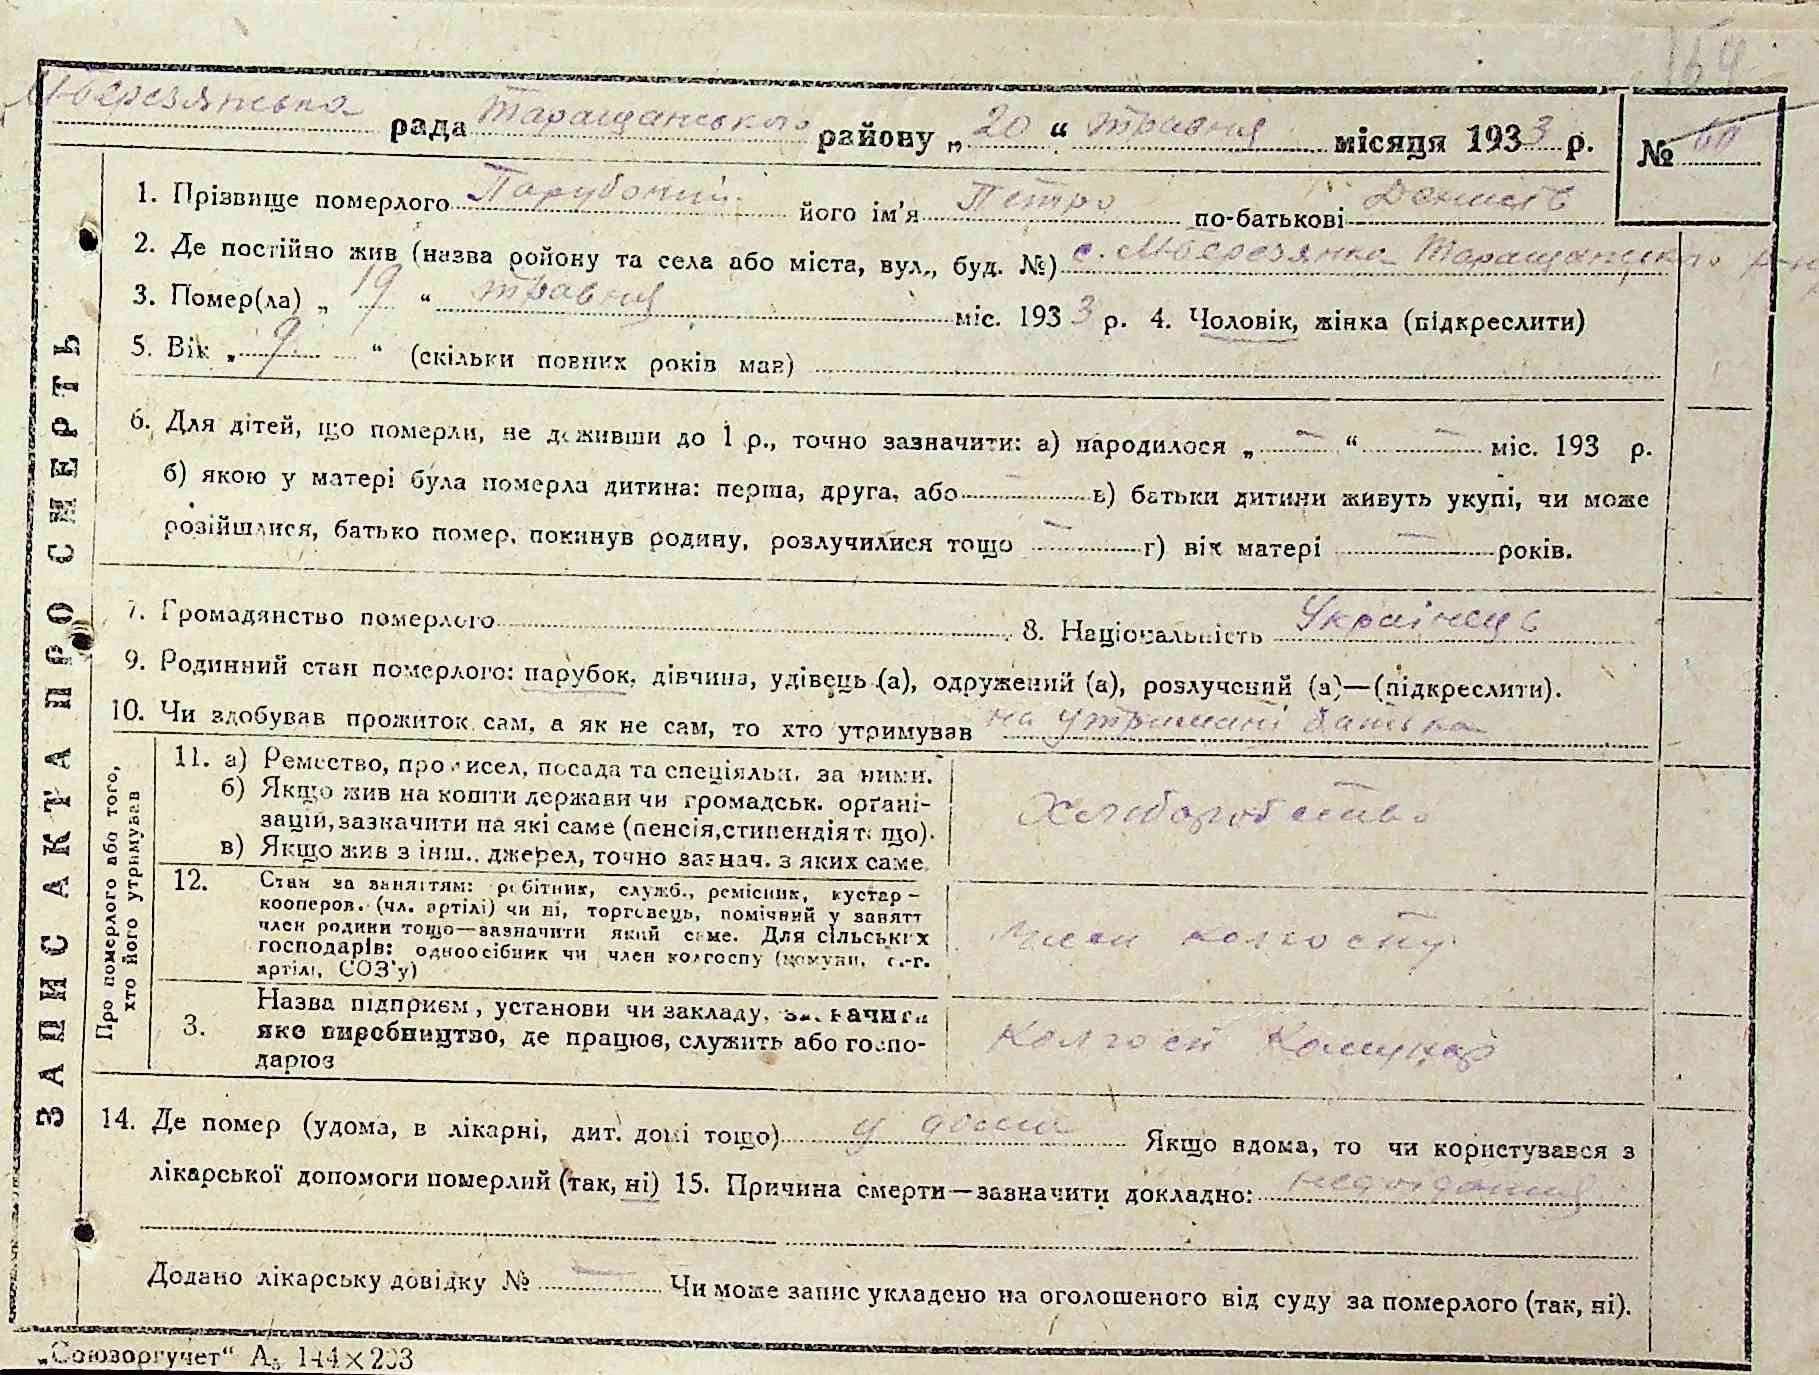 164
М-Березянська рада Таращанського району „ 20 “ травня місяця 1933 р. № 60
ЗАПИС АКТА ПРО СМЕРТЬ
1. Прізвище померлого Парубочий його ім'я Петро по-батькові Денисів
2. Де постійно жив (назва ройону та села або міста, вул., буд. №) с. М-Березянка Таращанського р-ну
3. Помер(ла) „ 19 “ травня міс. 1933 р. 4. Чоловік, жінка (підкреслити)
5. Вік „ 9 “ (скільки повних років мав)
6. Для дітей, що померли, не доживши до 1 р., точно зазначити: а) народилося „ — “ — міс. 193 р.
б) якою у матері була померла дитина: перша, друга, або — в) батьки дитини живуть укупі, чи може
розійшлися, батько помер, покинув родину, розлучилися тощо — г) вік матері — років.
7. Громадянство померлого 8. Національність Українець
9. Родинний стан померлого: парубок, дівчина, удівець (а), одружений (а), розлучений (а)—(підкреслити).
10. Чи здобував прожиток сам, а як не сам, то хто утримував на утримані батька
Про померлого або того, хто його утримував
11. а) Ремество, промисел, посада та спеціяльн. за ними.
б) Якщо жив на кошти держави чи громадськ. орґані-
зацій, зазначити на які саме (пенсія, стипендія т. що).
в) Якщо жив з інш. джерел, точно зазнач. з яких саме.
Хліборобство
12. Стан за заняттям: робітник, служб., ремісник, кустар-
кооперов. (чл. артілі) чи ні, торговець, помічний у занятт
член родини тощо—зазначити який саме. Для сільських
господарів: одноосібник чи член колгоспу (комуни, с.-г.
артілі, СОЗ'у)
Член колгоспу
3. Назва підприєм, установи чи закладу, зазначити
яке виробництво, де працює, служить або госпо-
дарює
Колгосп Комунар
14. Де помер (удома, в лікарні, дит. домі тощо) у дома Якщо вдома, то чи користувався з
лікарської допомоги померлий (так, ні) 15. Причина смерти—зазначити докладно: недоїдання
Додано лікарську довідку № — Чи може запис укладено на оголошеного від суду за померлого (так, ні).
„Союзоргучет“ А5 144×203